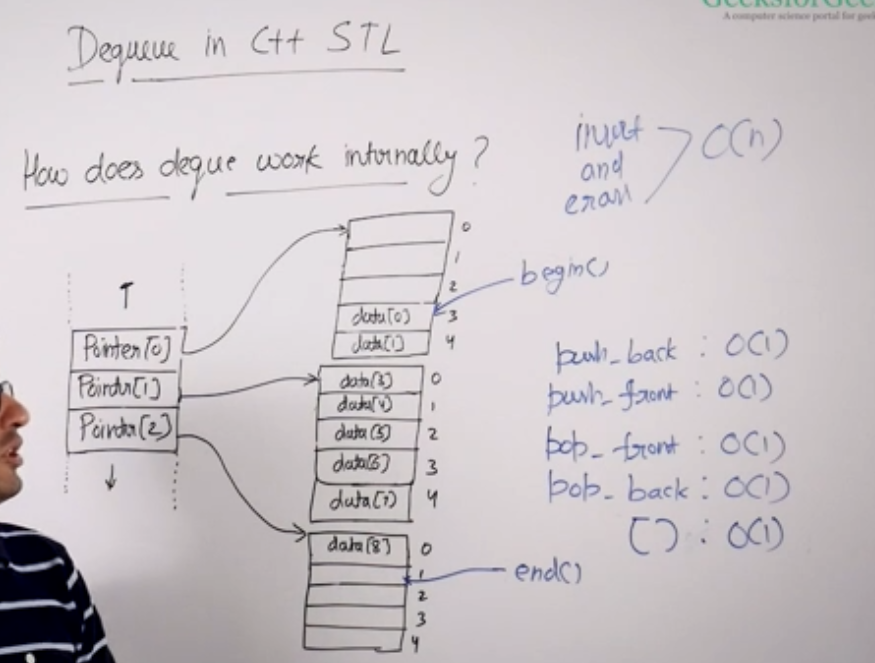 GeeksforGee
A computer science portal for geek
Dequeue in C++ STL
How does deque work internally ?
insert
and
erase
O(n)
0
1
2
data[0] 3
data[1] 4
begin()
Pointer[0]
Pointer[1]
Pointer[2]
data[3] 0
data[4] 1
data[5] 2
data[6] 3
data[7] 4
data[8] 0
1
2
3
4
end()
push_back : O(1)
push_front : O(1)
pop_front : O(1)
pop_back : O(1)
[] : O(1)